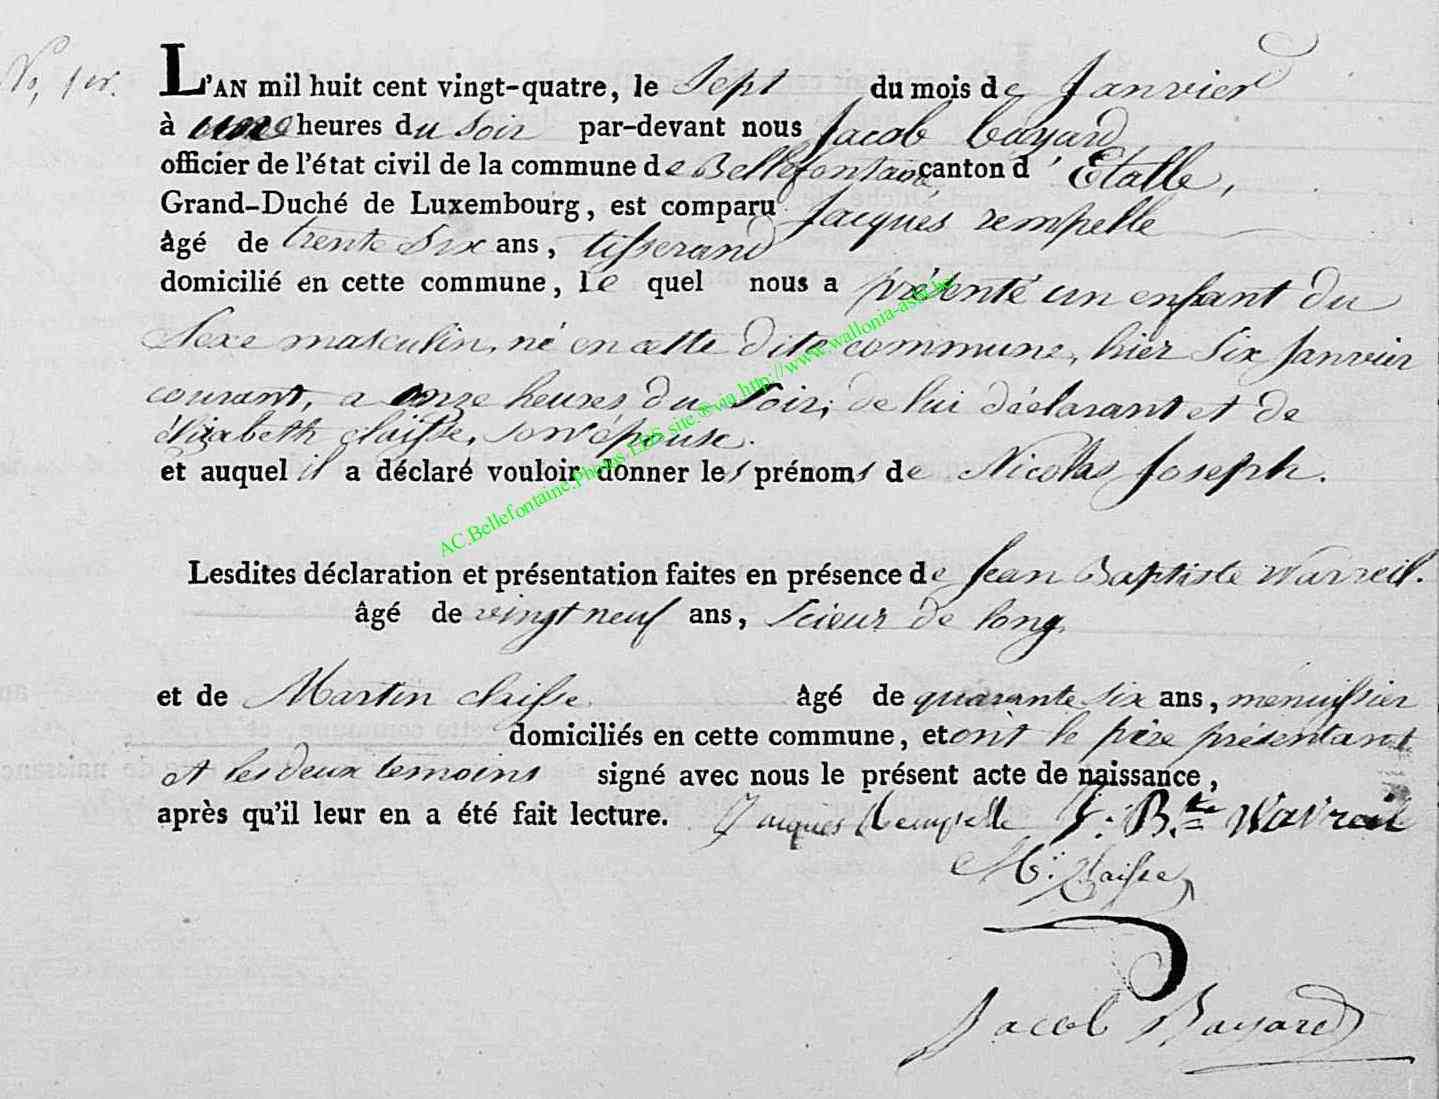 No, 1er.
L'AN mil huit cent vingt-quatre, le Sept du mois de Janvier
à une heures du Soir par-devant nous Jacob Bayard
officier de l'état civil de la commune de Bellefontaine canton d'Etalle,
Grand-Duché de Luxembourg, est comparu Jacques rempelle
âgé de trente Six ans, tisserand
domicilié en cette commune, le quel nous a présenté un enfant du
Sexe masculin, né en cette dite commune, hier Six Janvier
courant, a onze heures du Soir, de lui déclarant et de
élizabeth claisse, son épouse.
et auquel il a déclaré vouloir donner les prénoms de Nicolas Joseph.
Lesdites déclaration et présentation faites en présence de Jean Baptiste Wavreil.
âgé de vingt neuf ans, Scieur de long,
et de Martin claisse âgé de quarante six ans, menuissier
domiciliés en cette commune, et ont le père présentant
et les deux temoins signé avec nous le présent acte de naissance,
après qu'il leur en a été fait lecture. Jacques Rempelle J: B.te Wavreil
M: Claisse
Jacob Bayard
AC.Bellefontaine.Photos.EDS site.® via http://www.wallonia-asbl.be